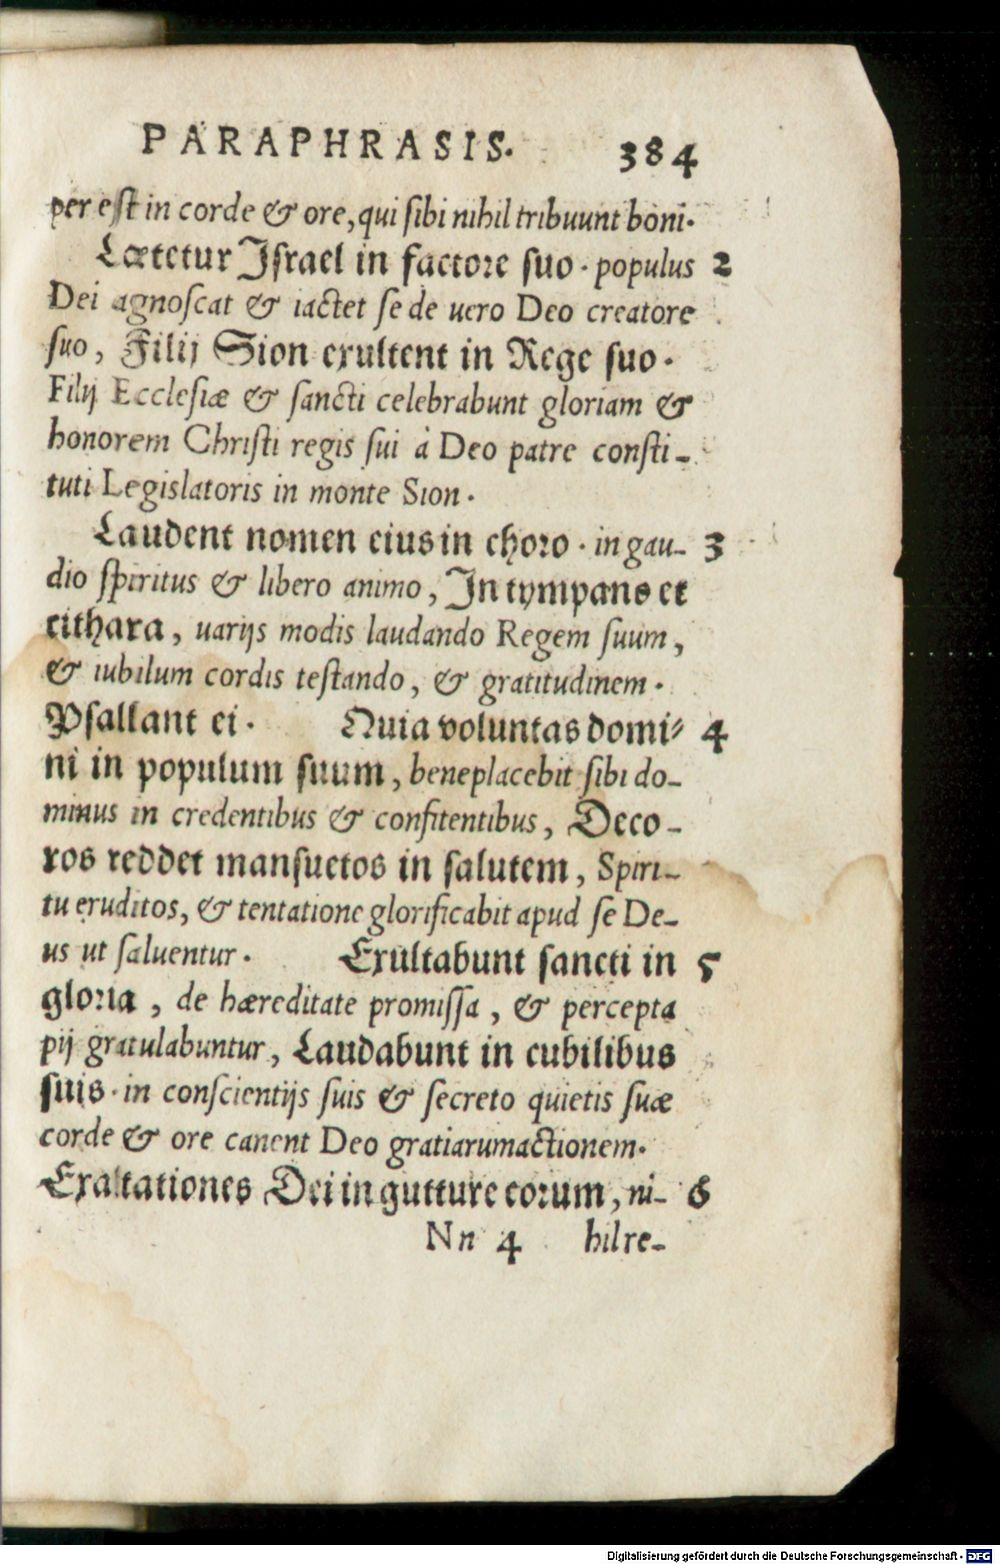 PARAPHRASIS. 384
per est in corde & ore, qui sibi nihil tribuunt boni.
Lætetur Israel in factore suo. populus 2
Dei agnoscat & iactet se de uero Deo creatore
suo, Filij Sion exultent in Rege suo.
Filij Ecclesiæ & sancti celebrabunt gloriam &
honorem Christi regis sui à Deo patre consti-
tuti Legislatoris in monte Sion.
Laudent nomen eius in choro. in gau- 3
dio spiritus & libero animo, In tympano et
cithara, uarijs modis laudando Regem suum,
& iubilum cordis testando, & gratitudinem.
Psallant ei. Quia voluntas domi- 4
ni in populum suum, beneplacebit sibi do-
minus in credentibus & confitentibus, Deco-
ros reddet mansuetos in salutem, Spiri-
tu eruditos, & tentatione glorificabit apud se De-
us ut saluentur. Exultabunt sancti in 5
gloria, de hæreditate promissa, & percepta
pij gratulabuntur, Laudabunt in cubilibus
suis. in conscientijs suis & secreto quietis suæ
corde & ore canent Deo gratiarumactionem.
Exaltationes Dei in gutture eorum, ni- 6
Nn 4 hil re-
Digitalisierung gefördert durch die Deutsche Forschungsgemeinschaft - DFG